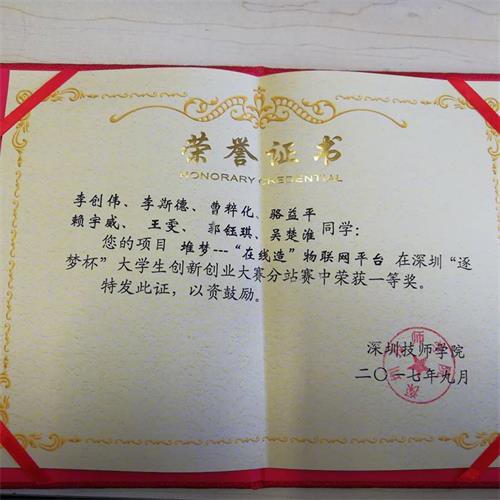 荣誉证书
HONORARY CREDENTIAL
李创伟、李斯德、曹粹化、骆益平
赖宇威、王雯、郭钰琪、吴楚淮同学：
您的项目 堆梦---“在线造”物联网平台 在深圳“逐
梦杯”大学生创新创业大赛分站赛中荣获一等奖。
特发此证，以资鼓励。
深圳技师学院
二〇一七年九月